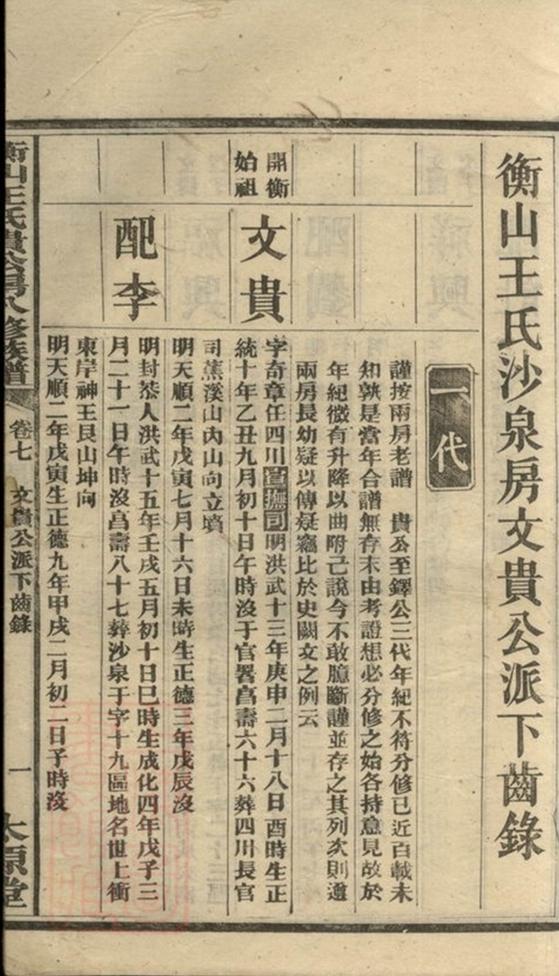 衡山王氏沙泉房文貴公派下齒錄
一代
謹按兩房老譜　貴公至鐸公三代年紀不符分修已近百載未
知孰是當年合譜無存末由考證想必分修之始各持意見故於
年紀微有升降以曲附己說今不敢臆斷謹並存之其列次則遵
兩房長幼疑以傳疑竊比於史闕文之例云
開衡
始祖
文貴
字奇章任四川宣撫司明洪武十三年庚申二月十八日酉時生正
統十年乙丑九月初十日午時沒于官署爲壽六十六葬四川長官
司蕉溪山內山向立墳
明天順二年戊寅七月十六日未時生正德三年戊辰沒
配李
明封恭人洪武十五年壬戌五月初十日巳時生成化四年戊子三
月二十一日午時沒爲壽八十七葬沙泉于字十九區地名世上衝
東岸神王艮山坤向
明天順二年戊寅生正德九年甲戌二月初二日子時沒
衡山王氏貴公房八修族譜
卷七　文貴公派下齒錄
一
太原堂